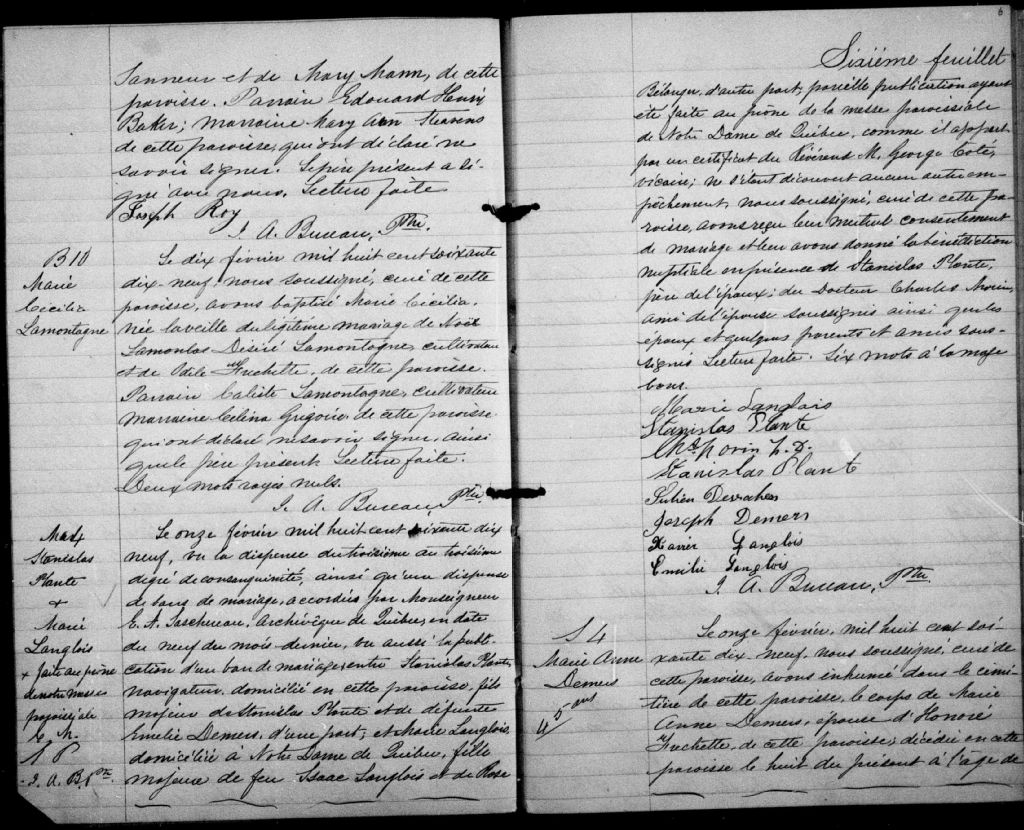 Tanneur et de Mary Mann, de cette
paroisse. Parrain Edouard Henry
Baker; marraine Mary Ann Stevens
de cette paroisse, qui ont déclaré ne
savoir signer. Le père présent a si-
gné avec nous. Lecture faite
Joseph Roy
J. A. Bureau, Ptre.
B 10
Marie
Cecilia
Lamontagne
Le dix février mil huit cent soixante
dix-neuf, nous soussigné, curé de cette
paroisse, avons baptisé Marie Cecilia,
née la veille du légitime mariage de
Désiré Lamontagne, cultivateur
et de Odile Fréchette, de cette paroisse.
Parrain Calixte Lamontagne, cultivateur
marraine Celina Grégoire de cette paroisse
qui ont déclaré ne savoir signer, ainsi
que le père présent. Lecture faite.
Deux mots rayés nuls.
J. A. Bureau, Ptre.
Stanislas
Plante
+
Marie
Langlois
+ faite au prône
de notre messe
paroissiale
1 P
J. A. B. Ptre.
Le onze février mil huit cent soixante dix
neuf, vu la dispense du troisième au troisième
degré de consanguinité, ainsi qu'une dispense
de bans de mariage, accordés par Monseigneur
E. A. Taschereau, Archevêque de Québec, en date
du neuf du mois dernier, vu aussi la publi-
cation d'un ban de mariage entre Stanislas Plante,
navigateur, domicilié en cette paroisse, fils
majeur de Stanislas Plante et de défunte
Emélie Demers, d'une part; et Marie Langlois,
domiciliée à Notre Dame de Québec, fille
majeure de feu Isaac Langlois et de Rose
6
Sixième feuillet
Bélanger, d'autre part, pareille publication ayant
été faite au prône de la messe paroissiale
de Notre Dame de Québec, comme il appert
par un certificat du Révérend M. George Coté,
vicaire; ne s'étant découvert aucun autre em-
pêchement, nous soussigné, curé de cette pa-
roisse, avons reçu leur mutuel consentement
de mariage et leur avons donné la bénédiction
nuptiale en présence de Stanislas Plante,
père de l'époux; du Docteur Charles Morin,
ami de l'épouse soussignés ainsi que les
époux et quelques parents et amis sous-
signés Lecture faite. Six mots à la marge
bons.
Marie Langlois
Stanislas Plante
Chs. Morin M. D.
Stanislas Plante
Julien
Joseph Demers
Xavier Langlois
Emilie Langlois
J. A. Bureau, Ptre.
S 4
Marie Anne
Demers
45 ans
Le onze février, mil huit cent soi
xante dix-neuf, nous soussigné, curé de
cette paroisse, avons inhumé dans le cime-
tière de cette paroisse, le corps de Marie
Anne Demers, épouse d'Honoré
Fréchette, de cette paroisse, décédée en cette
paroisse le huit du présent à l'âge de